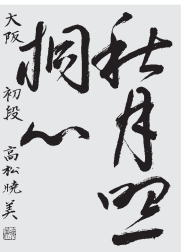 秋月照
桐心
大阪 初段 高松暁美